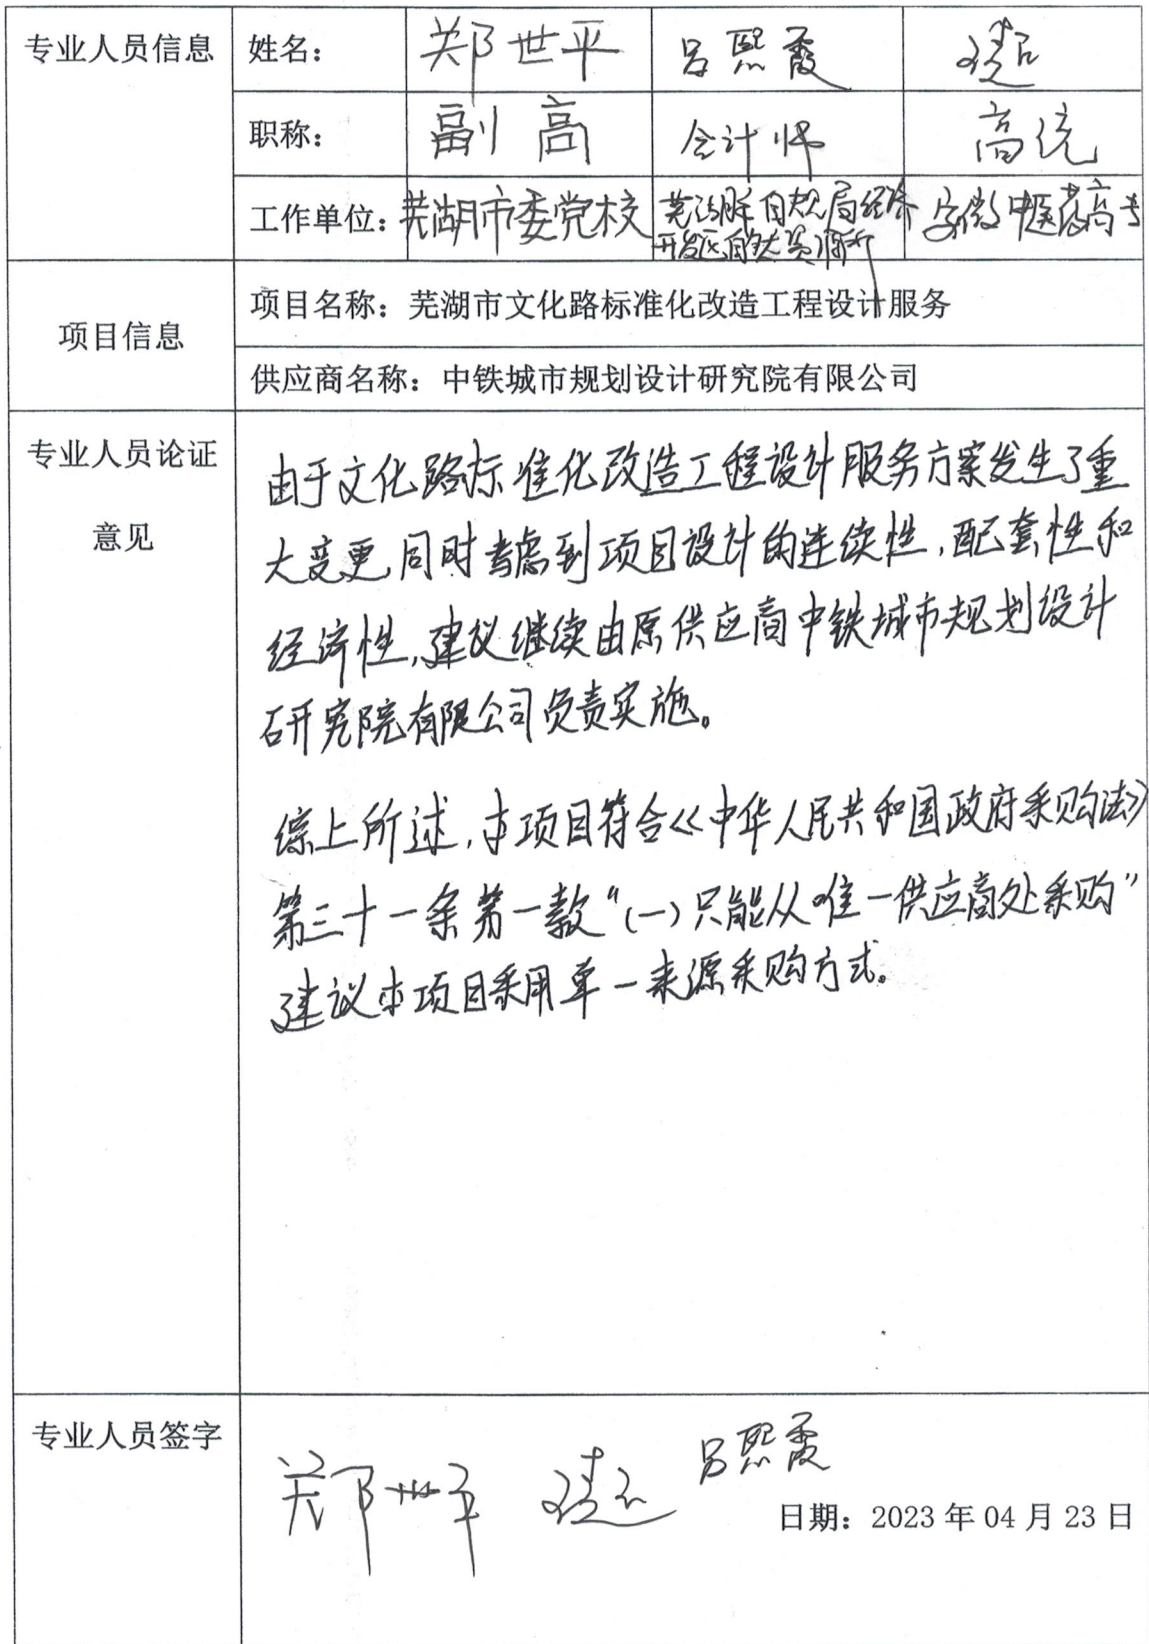 专业人员信息
姓名： 郑世平 吕熙霞
职称： 副高 会计师 高统
工作单位： 芜湖市委党校 芜湖自规局经济 安徽中医药高专
开发区自然资源所
项目信息
项目名称：芜湖市文化路标准化改造工程设计服务
供应商名称：中铁城市规划设计研究院有限公司
专业人员论证
意见
由于文化路标准化改造工程设计服务方案发生了重
大变更,同时考虑到项目设计的连续性,配套性和
经济性,建议继续由原供应商中铁城市规划设计
研究院有限公司负责实施。
综上所述,本项目符合《中华人民共和国政府采购法》
第三十一条第一款“(一)只能从唯一供应商处采购”
建议本项目采用单一来源采购方式。
专业人员签字
郑世平 吕熙霞
日期：2023 年 04 月 23 日